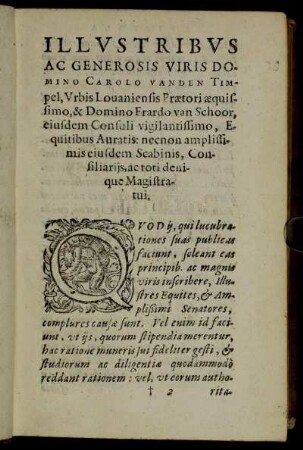 ILLVSTRIBVS
AC GENEROSIS VIRIS DO-
MINO CAROLO VANDEN TIM-
pel, Vrbis Louaniensis Prætori æquis-
simo, & Domino Frardo van Schoor,
eiusdem Consuli vigilantissimo, E-
quitibus Auratis: necnon amplissi-
mis eiusdem Scabinis, Con-
siliarijs, ac toti deni-
que Magistra-
tui,
QVOD ij, qui lucubra-
tiones suas publicas
faciunt, soleant eas
principib. ac magnis
viris inscribere, Illu-
stres Equites, & Am-
plissimi Senatores,
complures causæ sunt. Vel enim id faci-
unt, vt ijs, quorum stipendia merentur,
hac ratione muneris sui fideliter gesti, &
studiorum ac diligentiæ quodammodò
reddant rationem: vel, vt eorum autho-
† 2 rita-